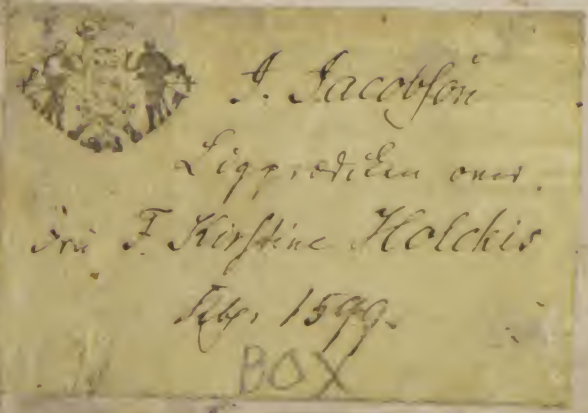 J. Jacobsön
Ligprædiken over
Fru F. Kirstine Holckis
Kbh. 1599.
BOX